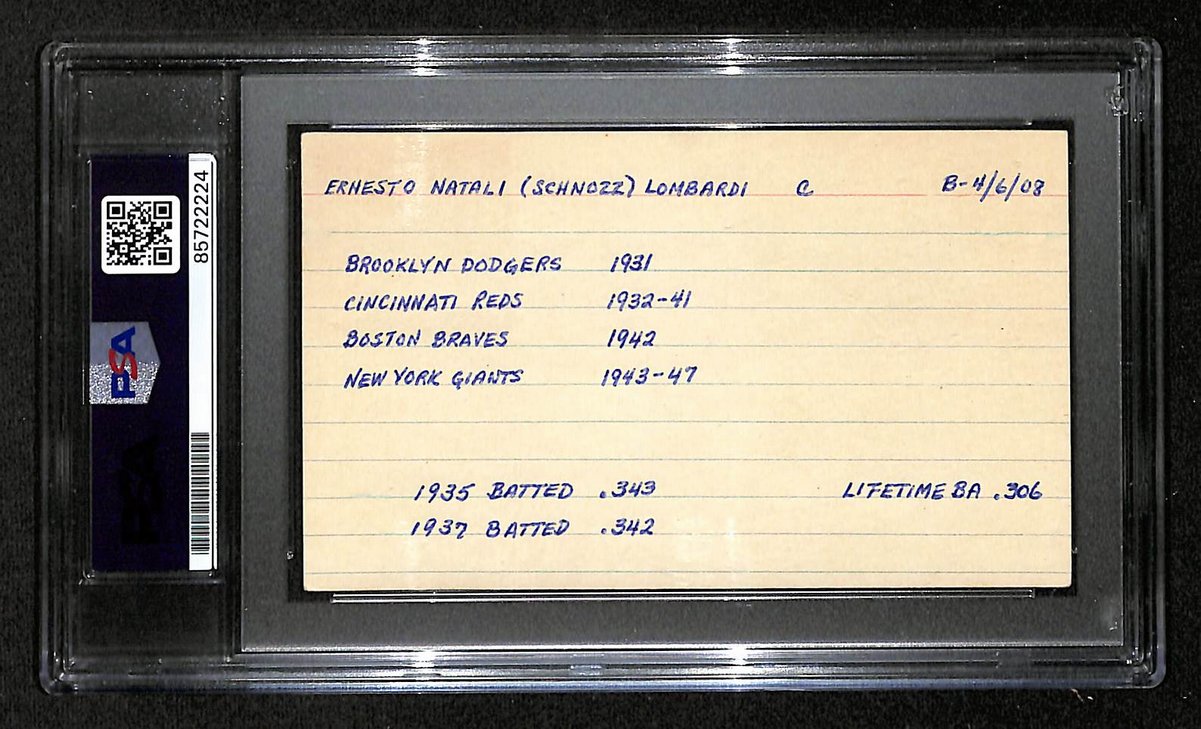 ERNESTO NATALI (SCHNOZZ) LOMBARDI C B-4/6/08
BROOKLYN DODGERS 1931
CINCINNATI REDS 1932-41
BOSTON BRAVES 1942
NEW YORK GIANTS 1943-47
1935 BATTED .343 LIFETIME BA .306
1937 BATTED .342
85722224
PSA
PSA